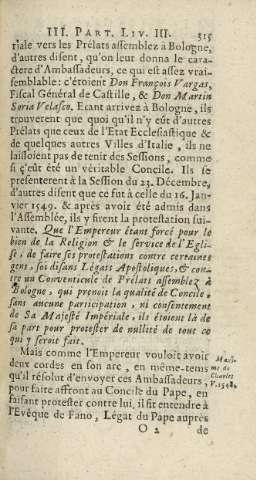 III. PART. LIV. III. 315
riale vers les Prélats assemblez à Bologne,
d'autres disent, qu'on leur donna le cara-
ctere d'Ambassadeurs, ce qui est assez vrai-
semblable: c'étoient Don François Vargas,
Fiscal Général de Castille, & Don Martin
Soria Velasco. Etant arrivez à Bologne, ils
trouverent que quoi qu'il n'y eût d'autres
Prélats que ceux de l'Etat Ecclesiastique &
de quelques autres Villes d'Italie, ils ne
laissoient pas de tenir des Sessions, comme
si ç'eût été un véritable Concile. Ils se
presenterent à la Session du 23. Décembre,
d'autres disent que ce fut à celle du 16. Jan-
vier 1549. & après avoir été admis dans
l'Assemblée, ils y firent la protestation sui-
vante. Que l'Empereur étant forcé pour le
bien de la Religion & le service de l'Egli-
se, de faire ses protestations contre certaines
gens, soi disans Légats Apostoliques, & con-
tre un Conventicule de Prélats assemblez à
Bologne, qui prenoit la qualité de Concile,
sans aucune participation, ni consentement
de Sa Majesté Impériale, ils étoient là de
sa part pour protester de nullité de tout ce
qui y seroit fait.
Mais comme l'Empereur vouloit avoir
deux cordes en son arc, en même-tems
qu'il résolut d'envoyer ces Ambassadeurs,
pour faite affront au Concile du Pape, en
faisant protester contre lui, il fit entendre à
l'Evêque de Fano, Légat du Pape auprès
O 2 de
me de
Charles
V. 1548.